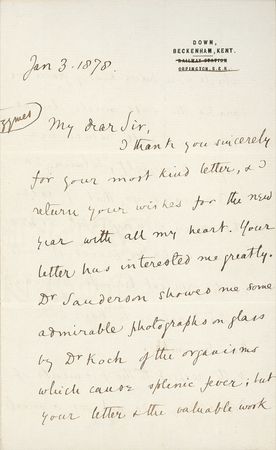 DOWN,
BECKENHAM, KENT.
RAILWAY STATION
ORPINGTON, S.E.R.
Jan 3. 1878.
My dear Sir,
I thank you sincerely
for your most kind letter, & I
return your wishes for the new
year with all my heart. Your
letter has interested me greatly.
Dr Sanderson showed me some
admirable photographs on glass
by Dr Koch of the organisms
which cause splenic fever; but
your letter & the valuable work